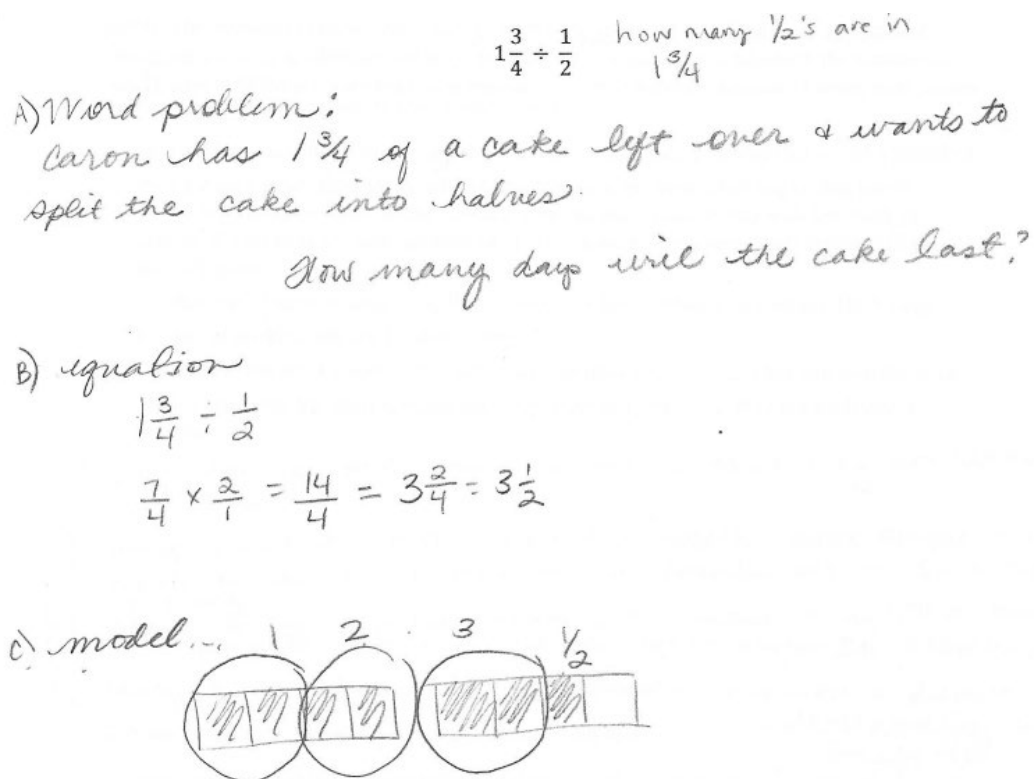 1 3/4 ÷ 1/2 how many 1/2's are in
1 3/4
A) Word problem:
Caron has 1 3/4 of a cake left over & wants to
split the cake into halves.
How many days will the cake last?
B) equation
1 3/4 ÷ 1/2
7/4 x 2/1 = 14/4 = 3 2/4 = 3 1/2
C) model...
1 2 3 1/2